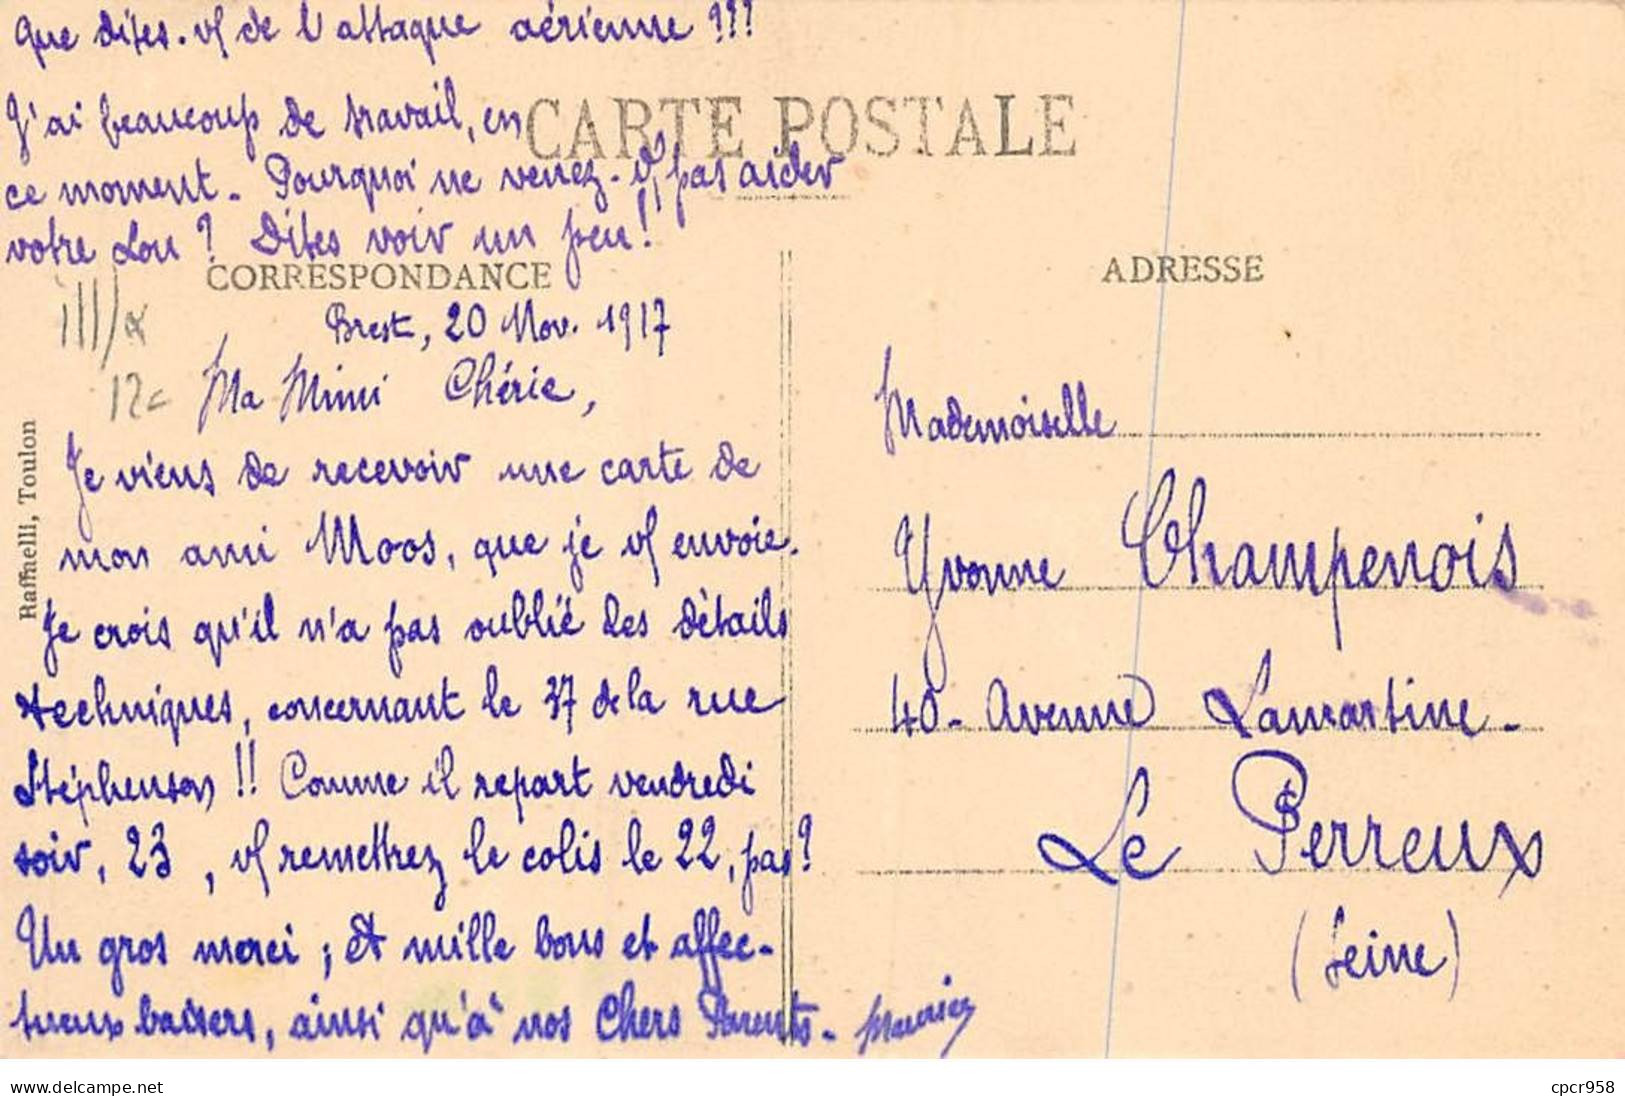 Que dites-vs de l'attaque aérienne !!!
J'ai beaucoup de travail, en
CARTE POSTALE
ce moment. Pourquoi ne venez-vs pas aider
votre Lou ? Dites voir un peu !!
CORRESPONDANCE
Brest, 20 Nov. 1917
Ma Mimi Chérie,
Je viens de recevoir une carte de
mon ami Moos, que je vs envoie.
Je crois qu'il n'a pas oublié des détails
techniques, concernant le 37 de la rue
Stéphenson !! Comme il repart vendredi
soir, 23, vs remettrez le colis le 22, pas ?
Un gros merci ; et mille bons et affec-
tueux baisers, ainsi qu'à nos Chers Parents.
Maurice
Raffaelli, Toulon
ADRESSE
Mademoiselle
Yvonne Champenois
40 - Avenue Lamartine -
Le Perreux
(Seine)
delcampe.net
cpcr958